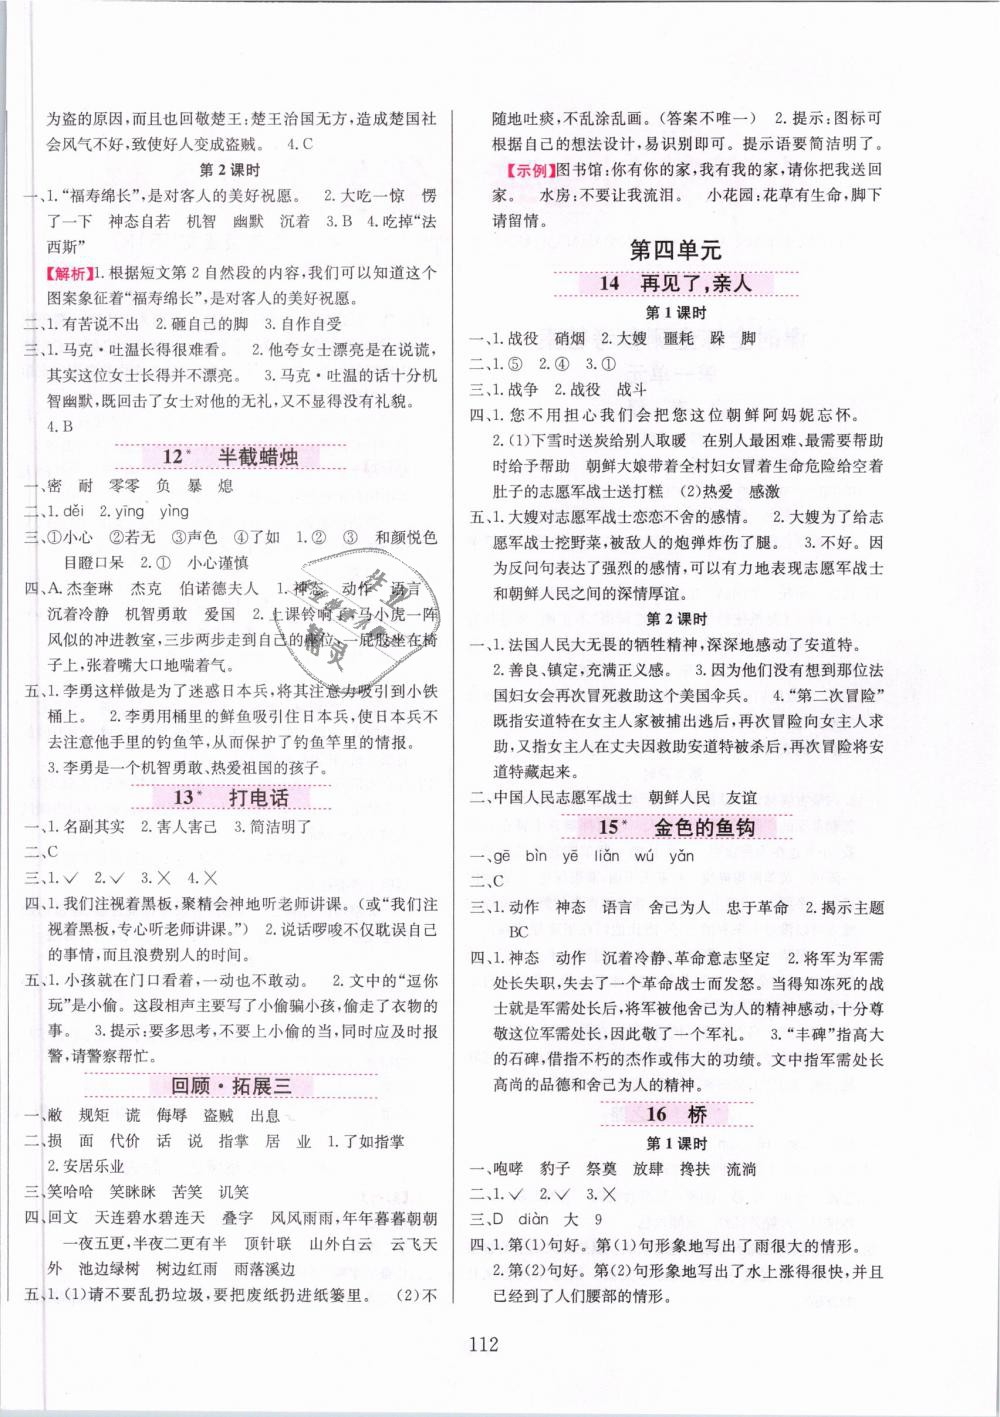 为盗的原因,而且也回敬楚王:楚王治国无方,造成楚国社
会风气不好,致使好人变成盗贼。 4.C
第2课时
一、1.“福寿绵长”,是对客人的美好祝愿。 2.大吃一惊 愣
了一下 神态自若 机智 幽默 沉着 3.B 4.吃掉“法
西斯”
【解析】1.根据短文第2自然段的内容,我们可以知道这个
图案象征着“福寿绵长”,是对客人的美好祝愿。
二、1.有苦说不出 2.砸自己的脚 3.自作自受
三、1.马克·吐温长得很难看。 2.他夸女士漂亮是在说谎,
其实这位女士长得并不漂亮。 3.马克·吐温的话十分机
智幽默,既回击了女士对他的无礼,又显得很有礼貌。
4.B
12* 半截蜡烛
一、密 耐 零零 负 暴 熄
二、1.děi 2.yīng yìng
三、①小心 ②若无 ③声色 ④了如 1.① ② ③ 和颜悦色
目瞪口呆 2.① 小心谨慎
四、A.杰奎琳 杰克 伯诺德夫人 1.神态 动作 语言
沉着冷静 机智勇敢 爱国 2.上课铃响了,马小虎一阵
风似的冲进教室,三步两步走到自己的座位,一屁股坐在椅
子上,张着嘴大口地喘着气。
五、1.李勇这样做是为了迷惑日本兵,将其注意力吸引到小铁
桶上。 2.李勇用桶里的鲜鱼吸引住日本兵,使日本兵不
去注意他手里的钓鱼竿,从而保护了钓鱼竿里的情报。
3.李勇是一个机智勇敢、热爱祖国的孩子。
13* 打电话
一、1.名副其实 2.害人害己 3.简洁明了
二、C
三、1.✓ 2.✓ 3.✗ 4.✗
四、1.我们注视着黑板,聚精会神地听老师讲课。(或“我们注
视着黑板,专心听老师讲课。”) 2.说话啰唆不仅耽误自己
的事情,而且浪费别人的时间。
五、1.小孩就在门口看着,一动也不敢动。 2.文中的“逗你
玩”是小偷。这段相声主要写了小偷骗小孩,偷走了衣物的
事。 3.提示:要多思考,不要上小偷的当,同时应及时报
警,请警察帮忙。
回顾·拓展三
一、敝 规矩 谎 侮辱 盗贼 出息
二、损 面 代价 话 说 指掌 居 业 1.了如指掌
2.安居乐业
三、笑哈哈 笑眯眯 苦笑 讥笑
四、回文 天连碧水碧连天 叠字 风风雨雨,年年暮暮朝朝
一夜五更,半夜二更有半 顶针联 山外白云 云飞天
外 池边绿树 树边红雨 雨落溪边
五、1.(1)请不要乱扔垃圾,要把废纸扔进纸篓里。 (2)不
随地吐痰,不乱涂乱画。(答案不唯一) 2.提示:图标可
根据自己的想法设计,易识别即可。提示语要简洁明了。
【示例】图书馆:你有你的家,我有我的家,看后请你送我回
家。 水房:不要让我流泪。 小花园:花草有生命,脚下
请留情。
第四单元
14 再见了,亲人
第1课时
一、1.战役 硝烟 2.大嫂 噩耗 跺 脚
二、1.⑤ 2.④ 3.①
三、1.战争 2.战役 战斗
四、1.您不用担心我们会把您这位朝鲜阿妈妮忘怀。
2.(1)下雪时送炭给别人取暖 在别人最困难、最需要帮助
时给予帮助 朝鲜大娘带着全村妇女冒着生命危险给空着
肚子的志愿军战士送打糕 (2)热爱 感激
五、1.大嫂对志愿军战士恋恋不舍的感情。 2.大嫂为了给志
愿军战士挖野菜,被敌人的炮弹炸伤了腿。 3.不好。因
为反问句表达了强烈的感情,可以有力地表现志愿军战士
和朝鲜人民之间的深情厚谊。
第2课时
一、1.法国人民大无畏的牺牲精神,深深地感动了安道特。
2.善良、镇定,充满正义感。 3.因为他们没有想到那位法
国妇女会再次冒死救助这个美国伞兵。 4.“第二次冒险”
既指安道特在女主人家被捕出逃后,再次冒险向女主人求
助,又指女主人在丈夫因救助安道特被杀后,再次冒险将安
道特藏起来。
二、中国人民志愿军战士 朝鲜人民 友谊
15* 金色的鱼钩
一、gē bìn yē liǎn wú yǎn
二、C
三、1.动作 神态 语言 舍己为人 忠于革命 2.揭示主题
BC
四、1.神态 动作 沉着冷静、革命意志坚定 2.将军为军需
处长失职,失去了一个革命战士而发怒。当得知冻死的战
士就是军需处长后,将军被他舍己为人的精神感动,十分尊
敬这位军需处长,因此敬了一个军礼。 3.“丰碑”指高大
的石碑,借指不朽的杰作或伟大的功绩。文中指军需处长
高尚的品德和舍己为人的精神。
16 桥
第1课时
一、咆哮 豹子 祭奠 放肆 搀扶 流淌
二、1.✓ 2.✓ 3.✗
三、D diàn 大 9
四、1.第(1)句好。第(1)句形象地写出了雨很大的情形。
2.第(2)句好。第(2)句形象地写出了水上涨得很快,并且
已经到了人们腰部的情形。
112